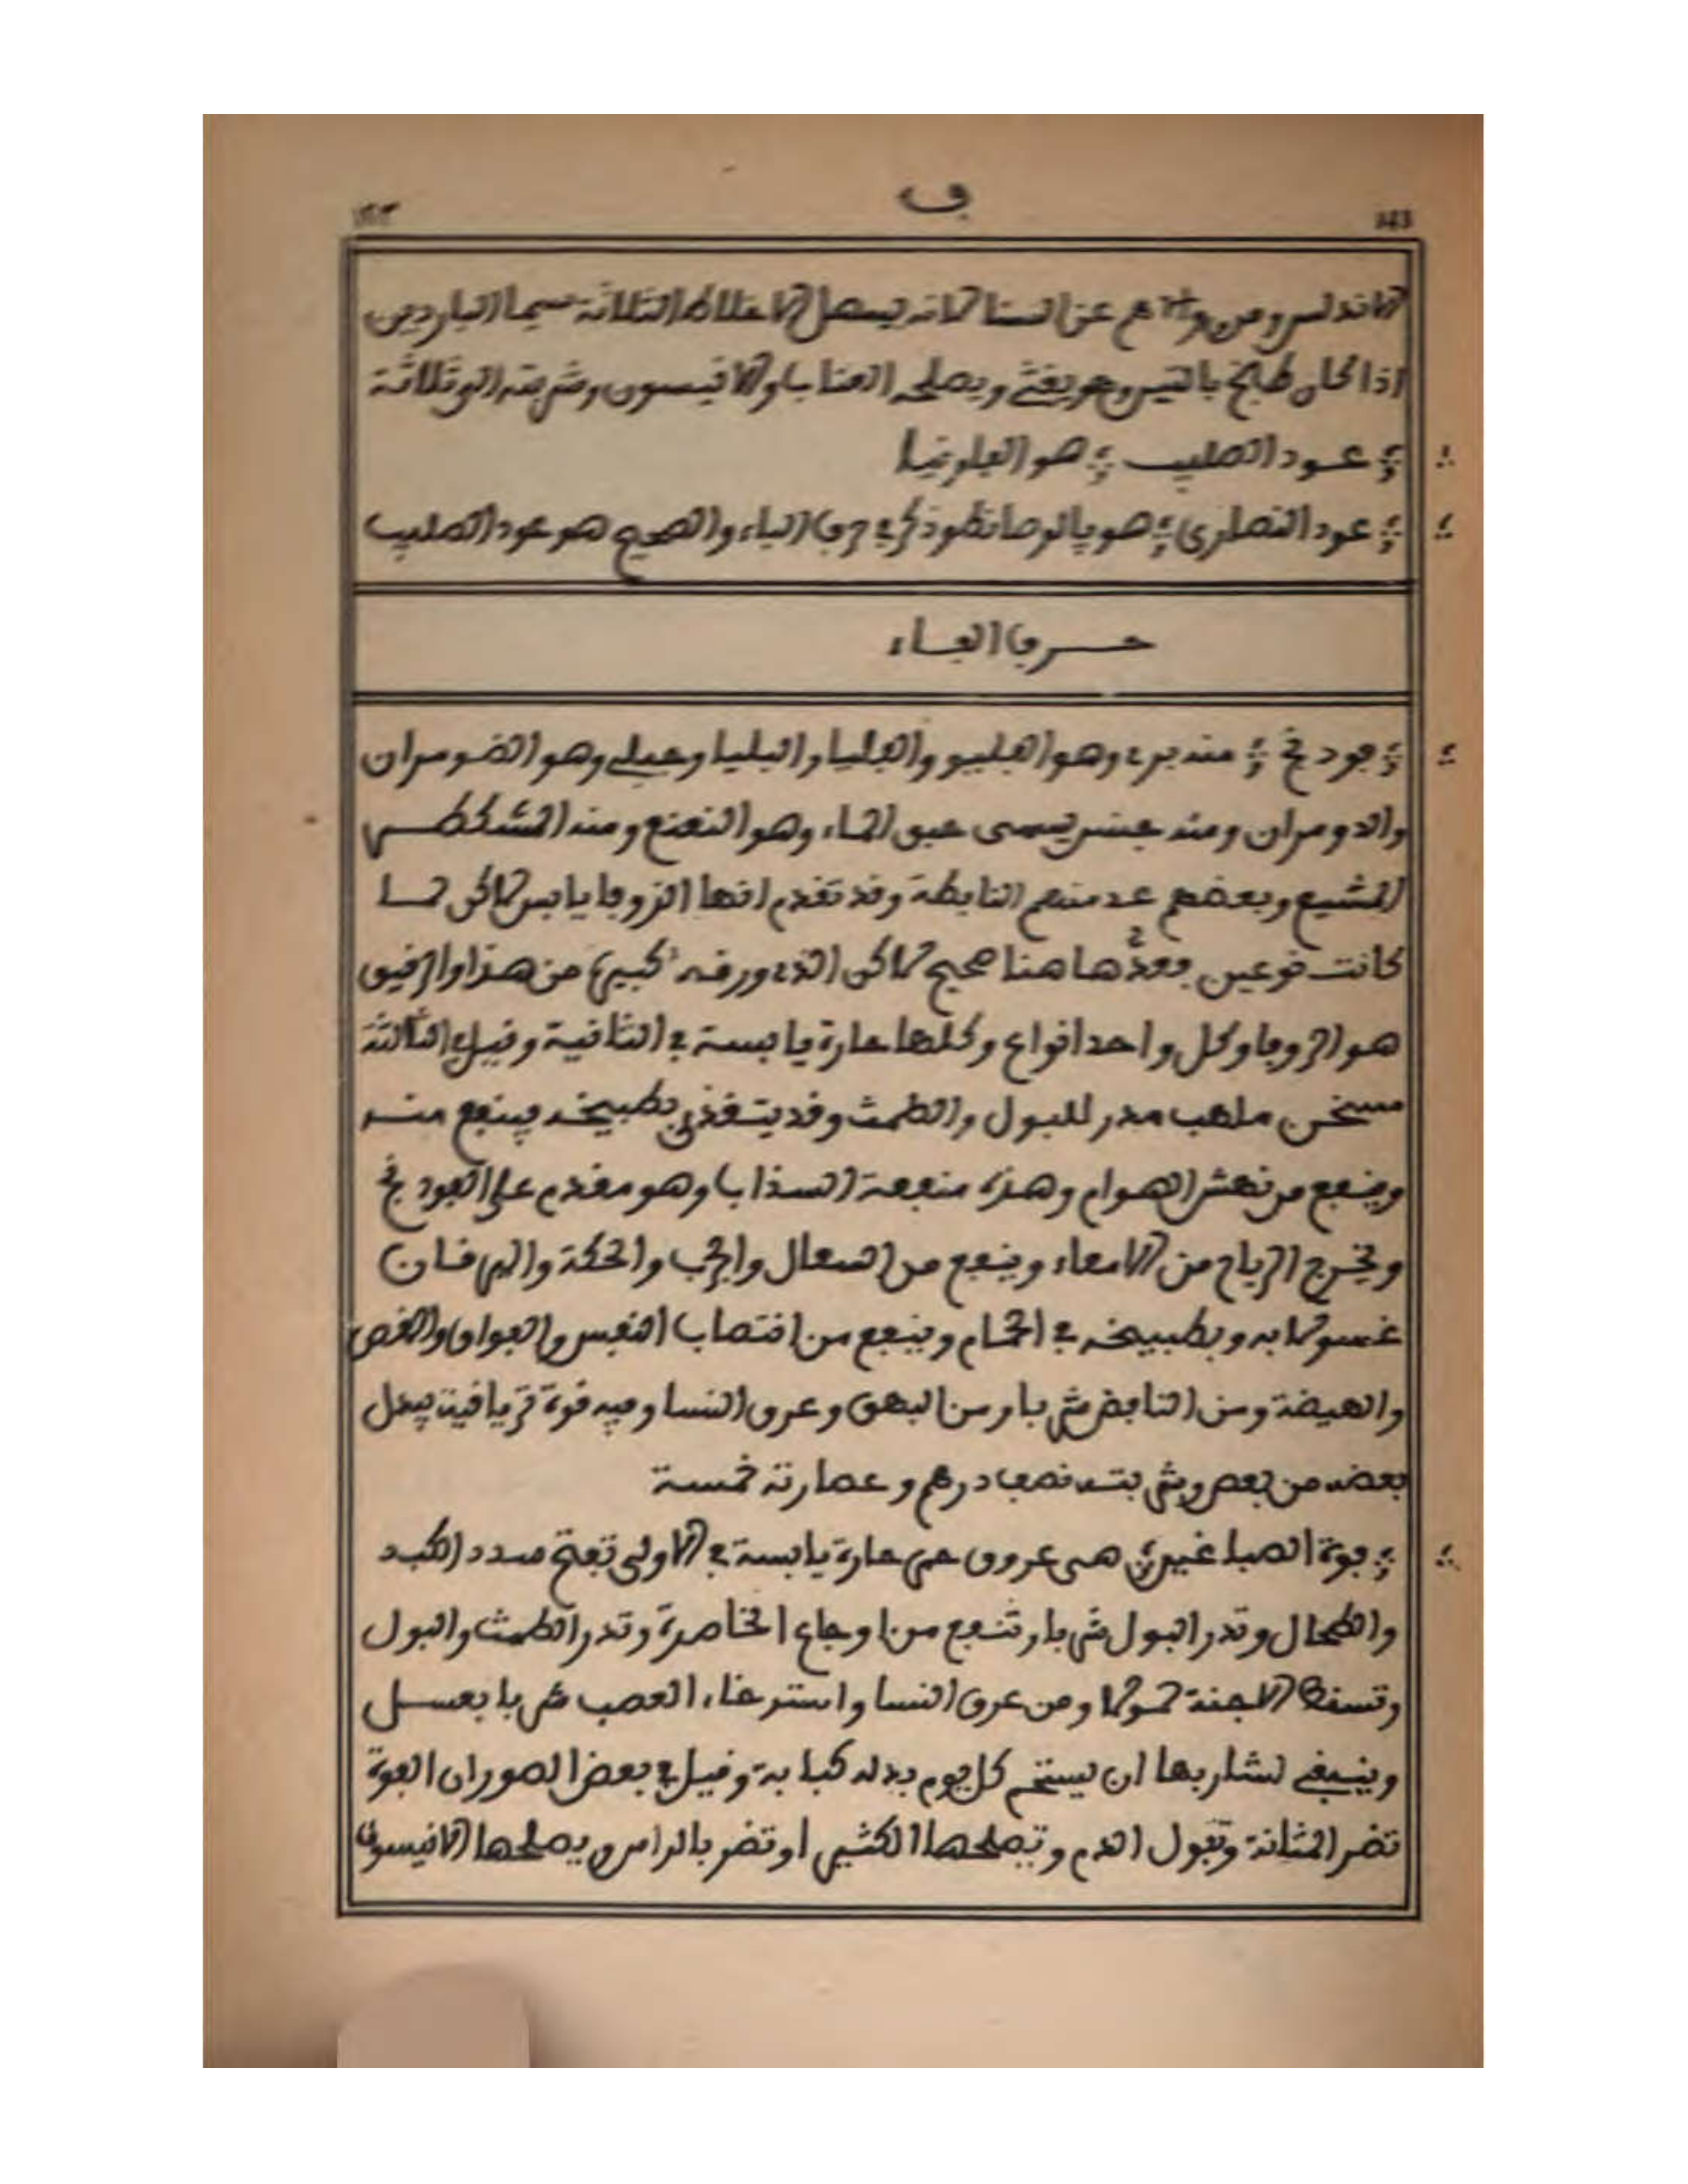 ف
الاندلس ومن وراءهم عن السنا لانه يسهل الاخلاط الثلاثة سيما الباردين
اذا كان طبخ بالتين وهو يغثى ويصلحه العناب او الانيسون وشربته الى ثلاثة
عود الصليب هو الفاونيا
عود النصارى هو ذكر في حرف الباء والصحيح هو عود الصليب
حرف الفاء
فودنج منه برى وهو الفليو والفليا والبليا وجبلى وهو الضومران
والدومران ومنه جنس يسمى حبق الماء وهو النعنع ومنه المشكطر
المشيع وبعضهم عد منهم النابطة وقد تقدم انها الزوفا يابس لاكن لما
كانت نوعين فعدها هنا صحيح لاكن الذى ورقه كبير من هذا والرقيق
هو الزوفا وكل واحد انواع وكلها حارة يابسة في الثانية وقيل في الثالثة
مسخن ملهب مدر للبول والطمث وقد يتغذى بطبيخه فينفع منه
وينفع من نهش الهوام وهذه منفعة السذاب وهو مقدم على الفودنج
ويخرج الرياح من الامعاء وينفع من السعال والجرب والحكة واليرقان
غسولا به وبطبيخه في الحمام وينفع من انتصاب النفس والفواق والمغص
والهيضة ومن النافض شربا ومن البهق وعرق النسا وفيه قوة ترياقية يبدل
بعضه من بعض وشربته نصف درهم وعصارته خمسة
فوة الصباغين هى عروق حمر حارة يابسة في الاولى تفتح سدد الكبد
والطحال وتدر البول شربا وتنفع من اوجاع الخاصرة وتدر الطمث والبول
وتسقط الاجنة حمولا ومن عرق النسا واسترخاء العصب شربا بعسل
وينبغى لشاربها ان يستحم كل يوم بدله كبابة وقيل في بعض الصور ان الفوة
تضر المثانة وتبول الدم وتصلحها الكثيرا وتضر بالراس ويصلحها الانيسون